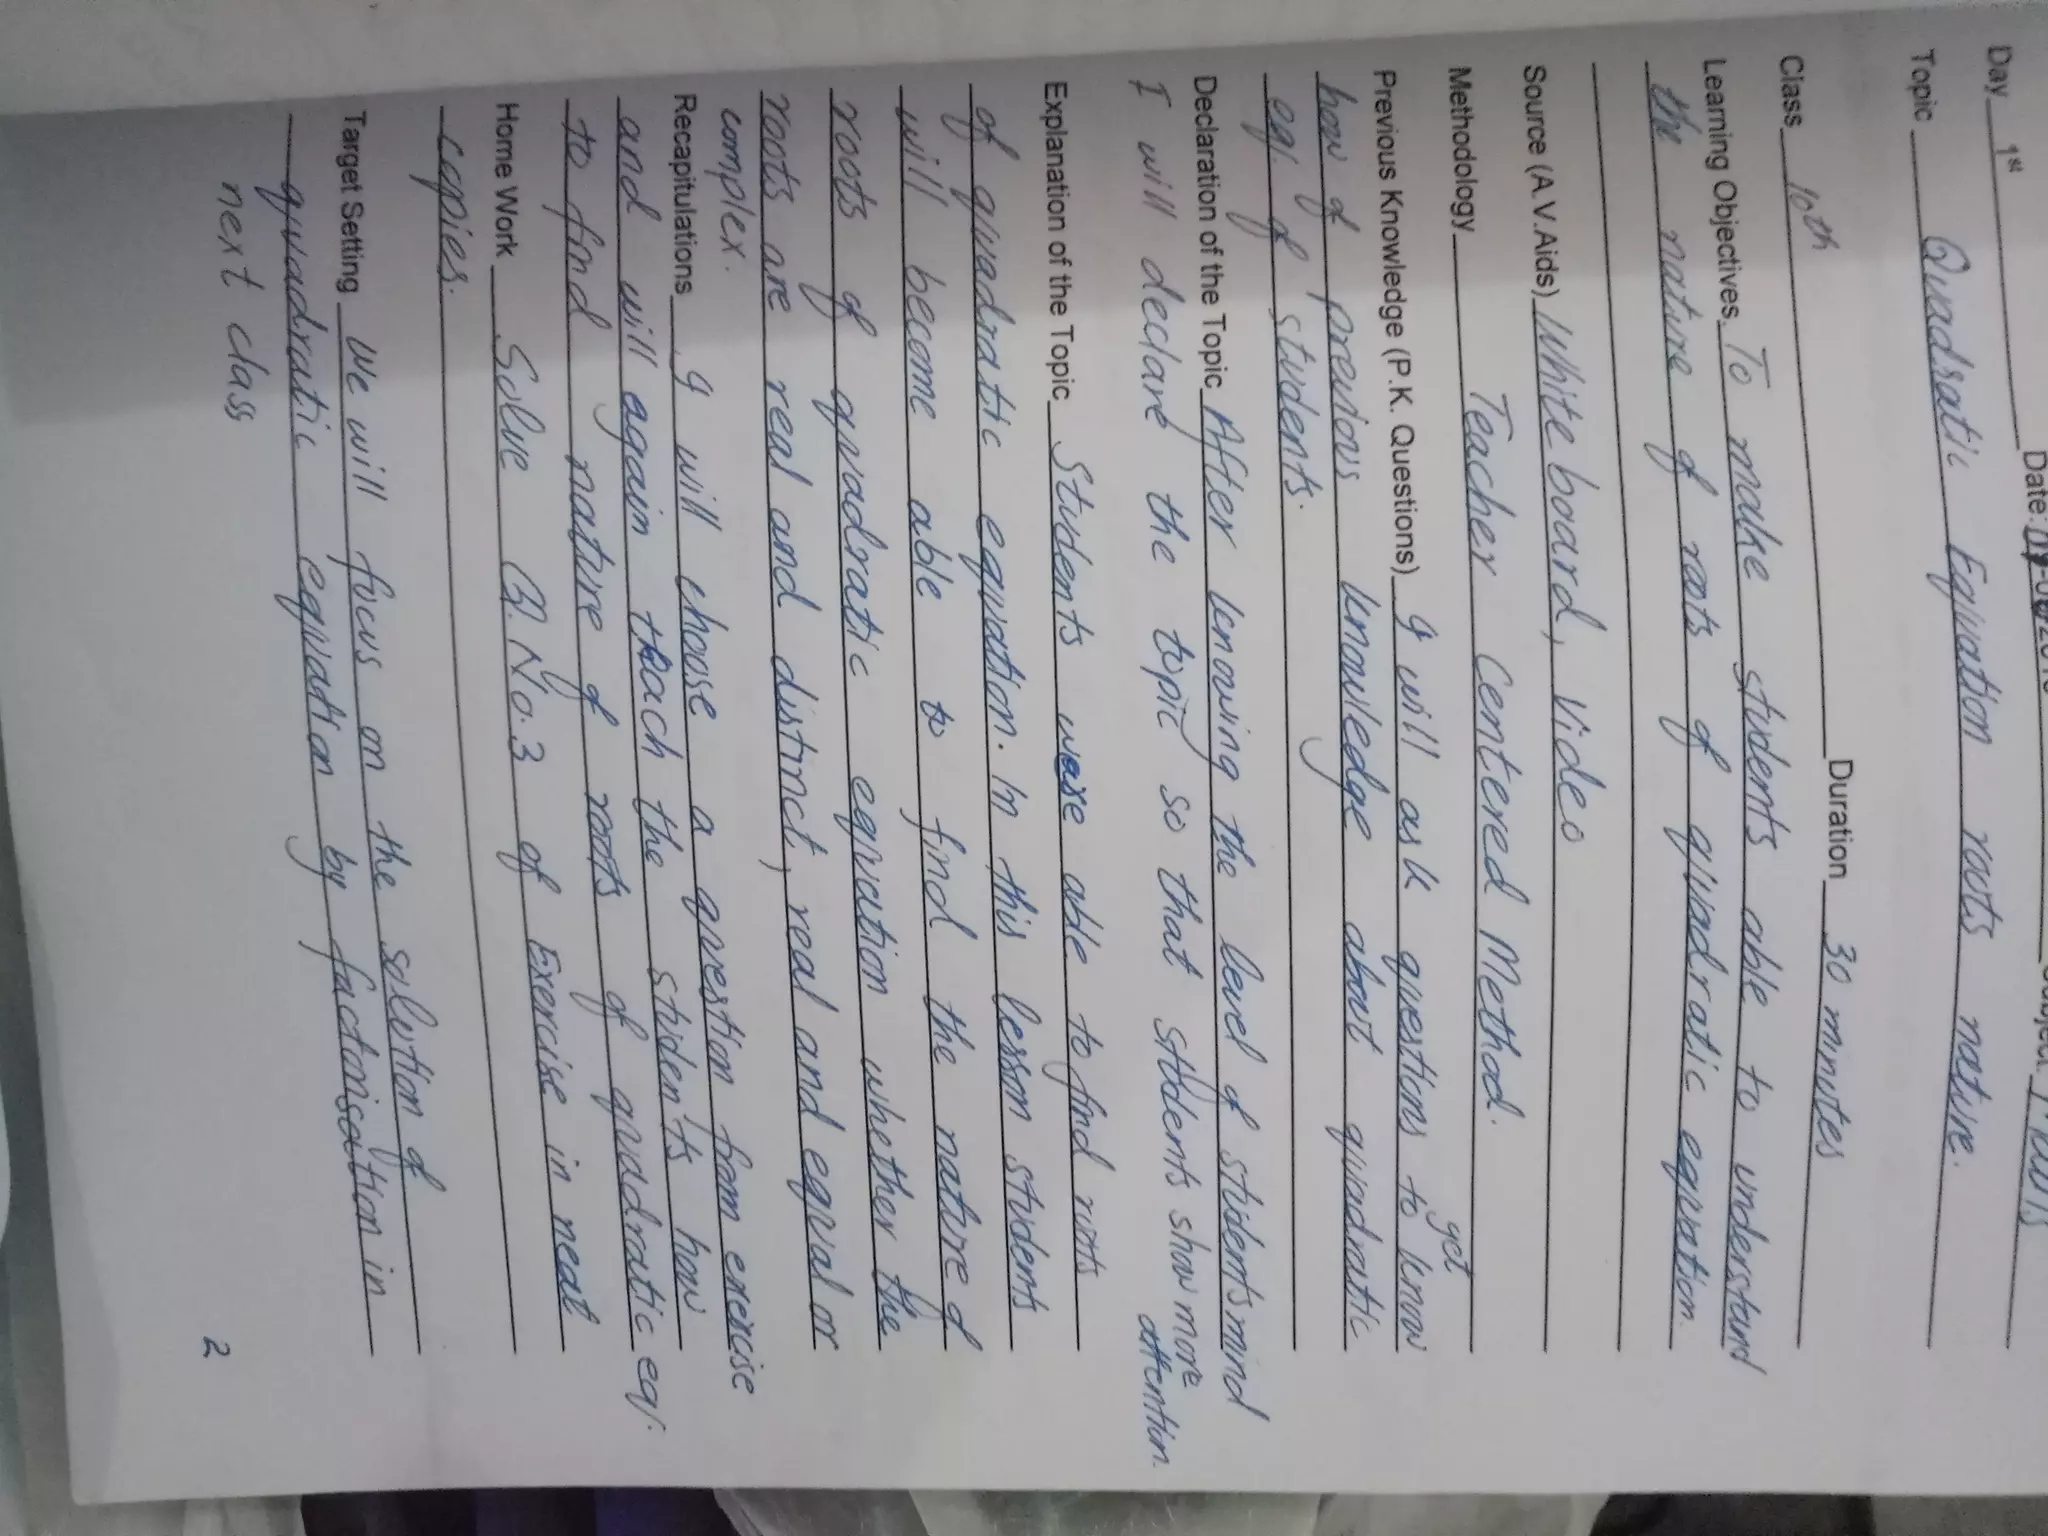 Day 1st Date: Subject:
Topic Quadratic Equation roots nature.
Class 10th Duration 30 minutes
Learning Objectives To make students able to understand
the nature of roots of quadratic equation.
Source (A.V.Aids) White board, Video
Methodology Teacher Centered Method.
Previous Knowledge (P.K. Questions) I will ask questions to get know
how of previous knowledge about quadratic
eq. of students.
Declaration of the Topic After knowing the level of students mind
I will declare the topic so that students show more attention.
Explanation of the Topic Students were able to find roots
of quadratic equation. In this lesson students
will become able to find the nature of
roots of quadratic equation whether the
roots are real and distinct, real and equal or
complex.
Recapitulations I will choose a question from exercise
and will again teach the students how
to find nature of roots of quadratic eq.
Home Work Solve Q.No.3 of Exercise in neat
copies.
Target Setting We will focus on the solution of
quadratic equation by factorisation in
next class
2